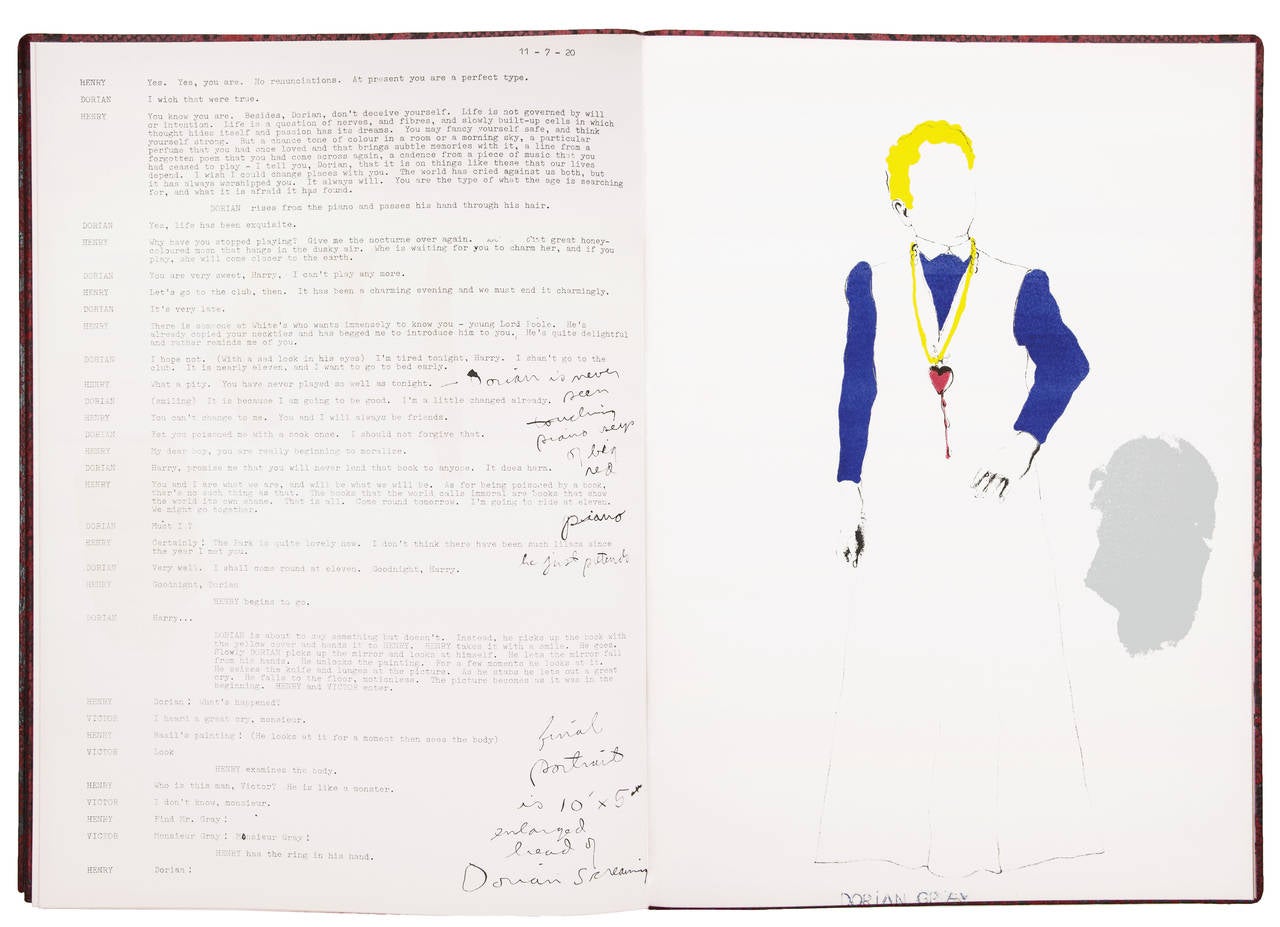 11 - 7 - 20
HENRY Yes. Yes, you are. No renunciations. At present you are a perfect type.
DORIAN I wich that were true.
HENRY You know you are. Besides, Dorian, don't deceive yourself. Life is not governed by will
or intention. Life is a question of nerves, and fibres, and slowly built-up cells in which
thought hides itself and passion has its dreams. You may fancy yourself safe, and think
yourself strong. But a chance tone of colour in a room or a morning sky, a particular
perfume that you had once loved and that brings subtle memories with it, a line from a
forgotten poem that you had come across again, a cadence from a piece of music that you
had ceased to play - I tell you, Dorian, that it is on things like these that our lives
depend. I wish I could change places with you. The world has cried against us both, but
it has always worshipped you. It always will. You are the type of what the age is searching
for, and what it is afraid it has found.
DORIAN rises from the piano and passes his hand through his hair.
DORIAN Yes, life has been exquisite.
HENRY Why have you stopped playing? Give me the nocturne over again. great honey-
coloured moon that hangs in the dusky air. She is waiting for you to charm her, and if you
play, she will come closer to the earth.
DORIAN You are very sweet, Harry. I can't play any more.
HENRY Let's go to the club, then. It has been a charming evening and we must end it charmingly.
DORIAN It's very late.
HENRY There is someone at White's who wants immensely to know you - young Lord Poole. He's
already copied your neckties and has begged me to introduce him to you. He's quite delightful
and rather reminds me of you.
DORIAN I hope not. (With a sad look in his eyes) I'm tired tonight, Harry. I shan't go to the
club. It is nearly eleven, and I want to go to bed early.
HENRY What a pity. You have never played so well as tonight. — Dorian is never
seen
DORIAN (smiling) It is because I am going to be good. I'm a little changed already.
HENRY You can't change to me. You and I will always be friends.
touching
DORIAN Yet you poisoned me with a book once. I should not forgive that.
piano keys
HENRY My dear boy, you are really beginning to moralize.
of big
DORIAN Harry, promise me that you will never lend that book to anyone. It does harm.
red
HENRY You and I are what we are, and will be what we will be. As for being poisoned by a book,
ther's no such thing as that. The books that the world calls immoral are books that show
the world its own shame. That is all. Come round tomorrow. I'm going to ride at eleven.
We might go together.
piano
DORIAN Must I?
HENRY Certainly! The Park is quite lovely now. I don't think there have been such lilacs since
the year I met you.
he just pretends
DORIAN Very well. I shall come round at eleven. Goodnight, Harry.
HENRY Goodnight, Dorian
HENRY begins to go.
DORIAN Harry...
DORIAN is about to say something but doesn't. Instead, he picks up the book with
the yellow cover and hands it to HENRY. HENRY takes it with a smile. He goes.
Slowly DORIAN picks up the mirror and looks at himself. He lets the mirror fall
from his hands. He unlocks the painting. For a few moments he looks at it.
He seizes the knife and lunges at the picture. As he stabs he lets out a great
cry. He falls to the floor, motionless. The picture becomes as it was in the
beginning. HENRY and VICTOR enter.
HENRY Dorian! What's happened?
VICTOR I heard a great cry, monsieur.
final
HENRY Basil's painting! (He looks at it for a moment then sees the body)
VICTOR Look
portrait
HENRY examines the body.
HENRY Who is this man, Victor? He is like a monster.
VICTOR I don't know, monsieur.
is 10' x 5'
HENRY Find Mr. Gray!
enlarged
VICTOR Monsieur Gray! Monsieur Gray!
head of
HENRY has the ring in his hand.
HENRY Dorian!
Dorian screaming
DORIAN GRAY